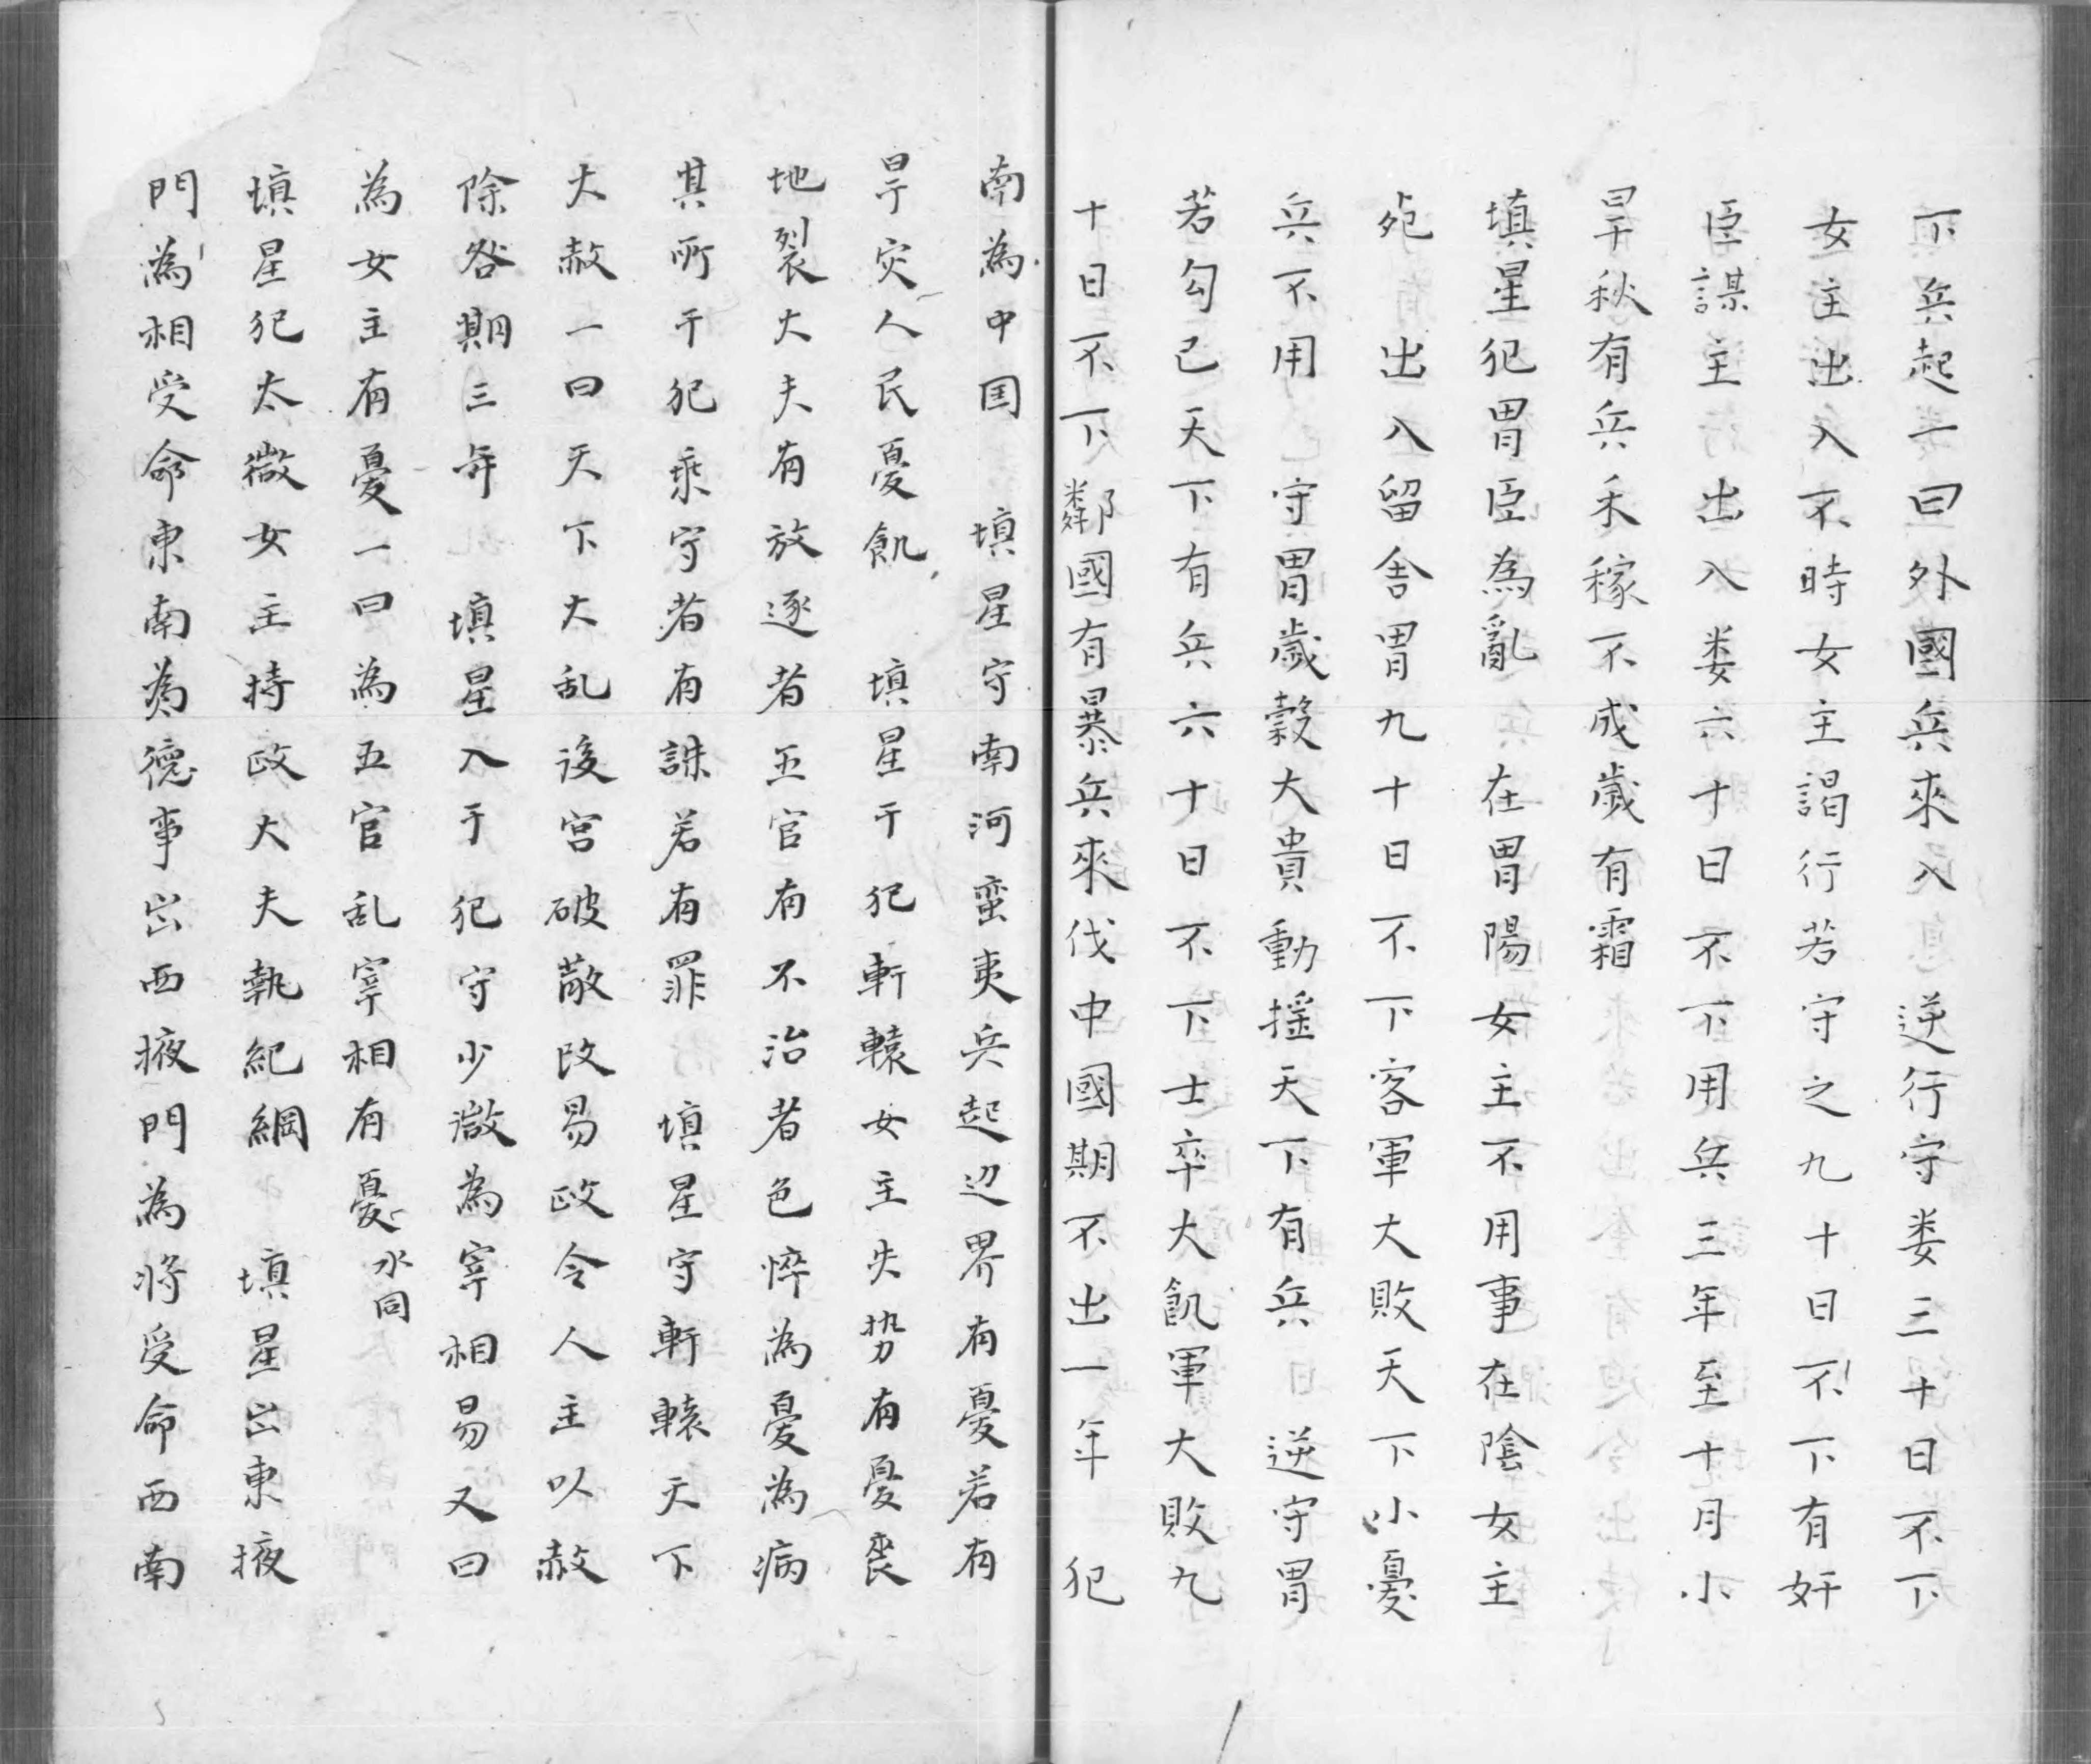 下兵起一曰外國兵來入　逆行守娄三十日不下
女主出入不時女主謁行若守之九十日不下有奸
臣謀主　出入娄六十日不下用兵三年至十月小
旱秋有兵禾稼不成歲有霜
填星犯胃臣為亂　在胃陽女主不用事在陰女主
死　出入留舍胃九十日不下客軍大敗天下小憂
兵不用　守胃歲穀大貴動揺天下有兵　逆守胃
若勾已天下有兵六十日不下士卒大飢軍大敗九
十日不下鄰國有暴兵來伐中國期不出一年　犯
南為中国　填星守南河蛮夷兵起辺界有憂若有
旱灾人民憂飢　填星干犯軒轅女主失势有憂丧
地裂大夫有放逐者五官有不治者色悴為憂為病
其所干犯乘守者有誅若有罪　填星守軒轅天下
大赦一曰天下大乱後宮破散改易政令人主以赦
除咎期三年　填星入于犯守少微為宰相易又曰
為女主有憂一曰為五官乱宰相有憂水同
填星犯太微女主持政大夫執紀綱　填星出東掖
門為相受命東南為德事出西掖門為将受命西南